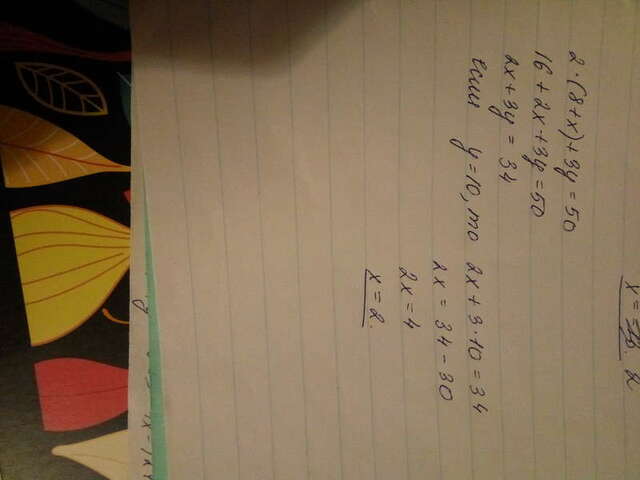 2·(8+x)+3y=50
16+2x+3y=50
2x+3y=34
если y=10, то 2x+3·10=34
2x=34-30
2x=4
x=2.